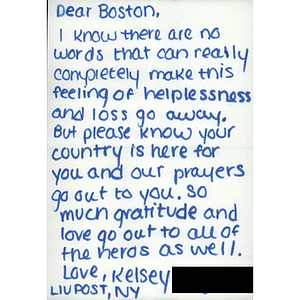 Dear Boston,
I know there are no
words that can really
completely make this
feeling of helplessness
and loss go away.
But please know your
country is here for
you and our prayers
go out to you. So
much gratitude and
love go out to all of
the heros as well.
Love, Kelsey
LIU POST, NY